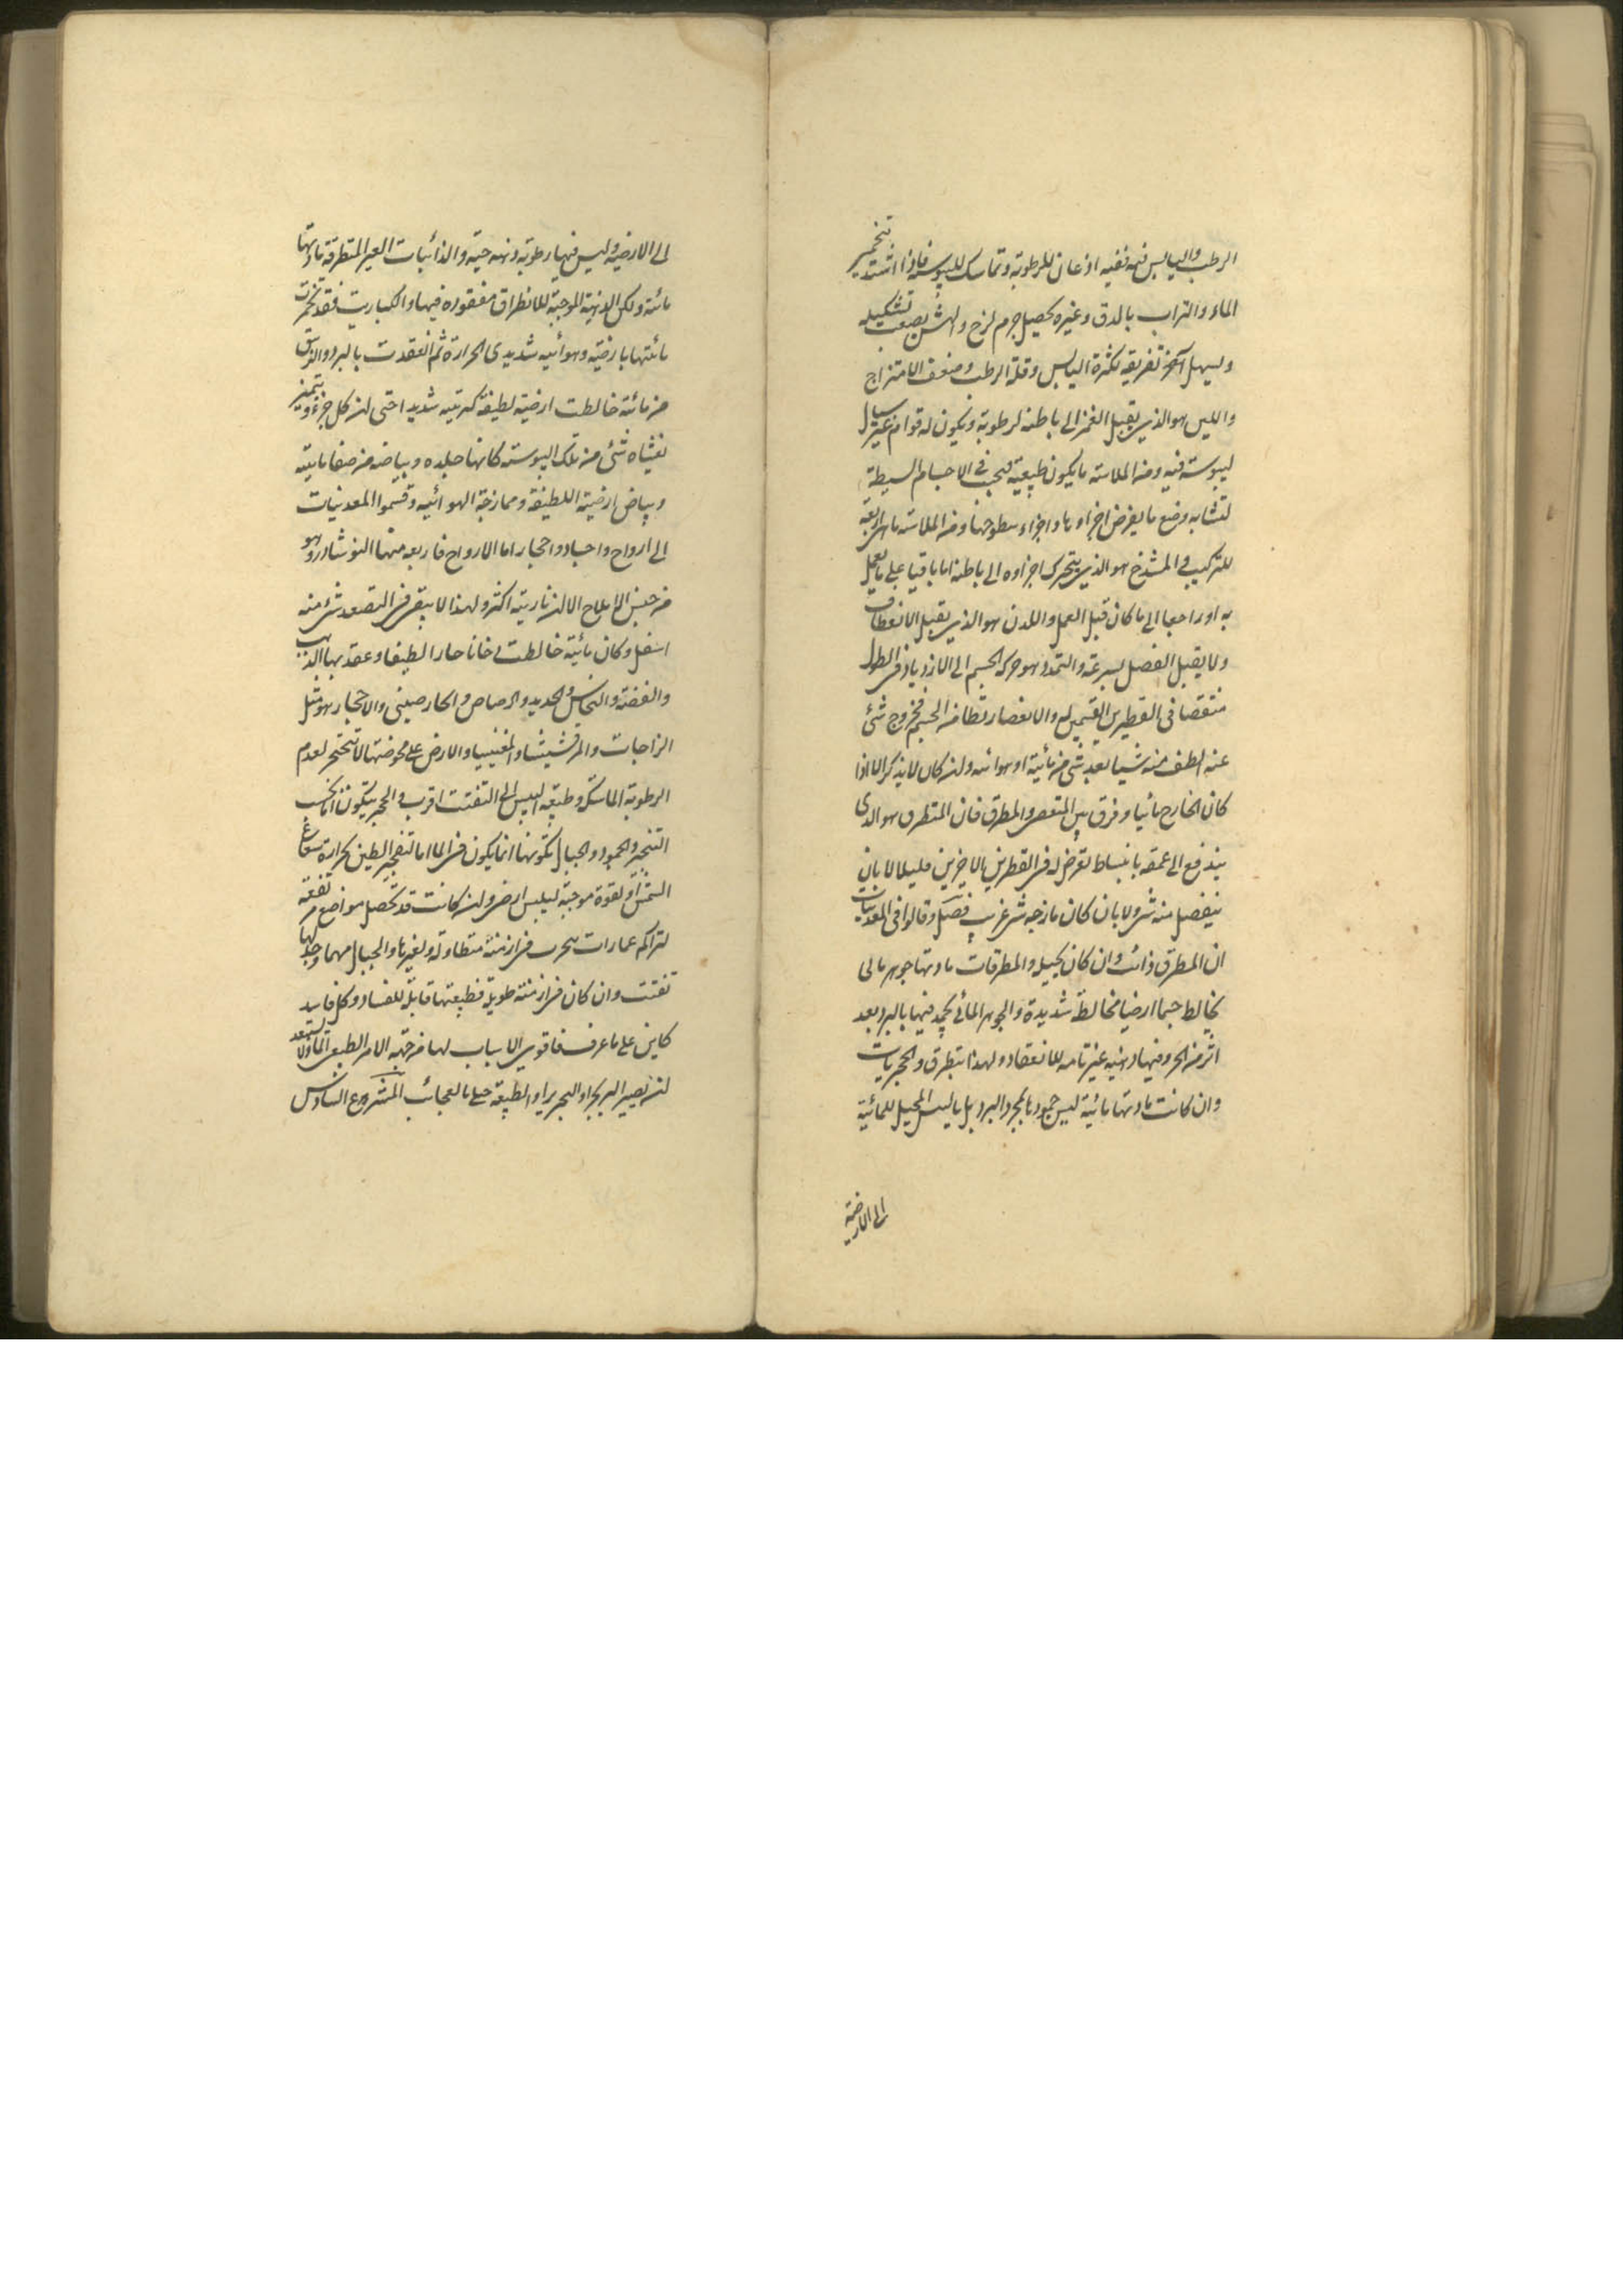 الرطب واليابس فيه ففيه اذعان للرطوبة وتماسك لليبوسة فاذا اشتد تخمير
الماء والتراب بالدق وغيره يحصل جرم لزج والهش يصعب تشكيله
ويسهل تفريقه لكثرة اليابس وقلة الرطب وضعف الامتزاج
واللين هو الذي يقبل الغمز الى باطنه لرطوبة ويكون له قوام غير سيال
ليبوسة فيه ومن الملاسة ما يكون طبيعية فيجب في الاجسام البسيطة
لتشابه وضع ما يفرض اجزاوها واجزاء سطوحها ومن الملاسة ما هي تابعة
للتركيب والمشدخ هو الذي يتحرك اجزاوه الى باطنه اما باقيا على ما يعمل
به او راجعا الى ما كان قبل العمل واللدن هو الذي يقبل الانعطاف
ولا يقبل الفصل بسرعة والتمدد هو حركة الجسم الى الازدياد في الطول
منتقصا في القطرين القسيمين له والانعصار تطامن الجسم بخروج شئ
عنه الطف منه شيئا بعد شئ من مائية او هوائية ولن كان لا يذكر الا اذا
كان الخارج مائيا وفرق بين المنعصر والمطرق فان المتطرق هو الذى
يندفع الى عمقه بانبساط تعرض له في القطرين الاخرين قليلا لا بان
ينفصل منه شئ ولا بان كان مازجه شئ غريب فصل وقالوا في المعدنيات
ان المطرق ذائب وان كان بحيلة والمطرقات مادتها جوهر مائى
يخالط جسما ارضيا مخالطة شديدة والجوهر المائي يجمد فيها بالبرد بعد
اثر من الحر وفيها دهنية غير تامة للانعقاد ولهذا يتطرق والحجريات
وان كانت مادتها مائية ليس جمودها بمجرد البرد بل باليبس المحيل للمائية
الى الارضية
الى الارضية وليس فيها رطوبة دهنية حية والذائبات الغير المتطرقة مادتها
مائية ولكن الدهنية الموجبة للانطراق مفقودة فيها والكباريت فقد تخمرت
مائيتها بارضية وهوائية شديدى الحرارة ثم انعقدت بالبرد والزيبق
من مائة خالطت ارضية لطيفة كبريتية شديدا حتى لن كل جزء يتميز و
يغشاه شئ من تلك اليبوسة كانها جلده وبياضه من صفا مائيته
وبياض ارضيته اللطيفة وممازجة الهوائية وقسموا المعدنيات
الى ارواح واجساد واحجار اما الارواح فاربعة منها النوشادر وهو
من جنس الاملاح الا لن ناريته اكثر ولهذا لا يبقى في التصعد شئ منه
اسفل وكان مائية خالطت دخانا حارا لطيفا وعقد بها الذهب
والفضة والنحاس والحديد والرصاص والخارصينى والاحجار هو مثل
الزاجات والمرقشيشا والمغنيسيا والارض على محوضتها لا تتحجر لعدم
الرطوبة الماسكة وطبيعة اليبس الى التفتت اقرب والحجر يتكون اما بحسب
التفجر والجمود والجبال تكونها انما يكون في الماء اما لتفجير الطين بحرارة شعاع
الشمس او لقوة موجبة ليبس ارضي ولن كانت قد تحصل مواضع مرتفعة
لتراكم عمارات تخرب في ازمنة متطاولة ولغيرها والجبال مهما وجد لها
تفتت وان كان في ازمنة طويلة فطبيعتها قابلة للفساد وكل فاسد
كاين على ما عرف فاقوى الاسباب لها من جهة الامر الطبيعي الماء ولا استبعد
لن يصير البر بحرا والبحر برا والطبيعة حبلى بالعجائب المشروع السادس